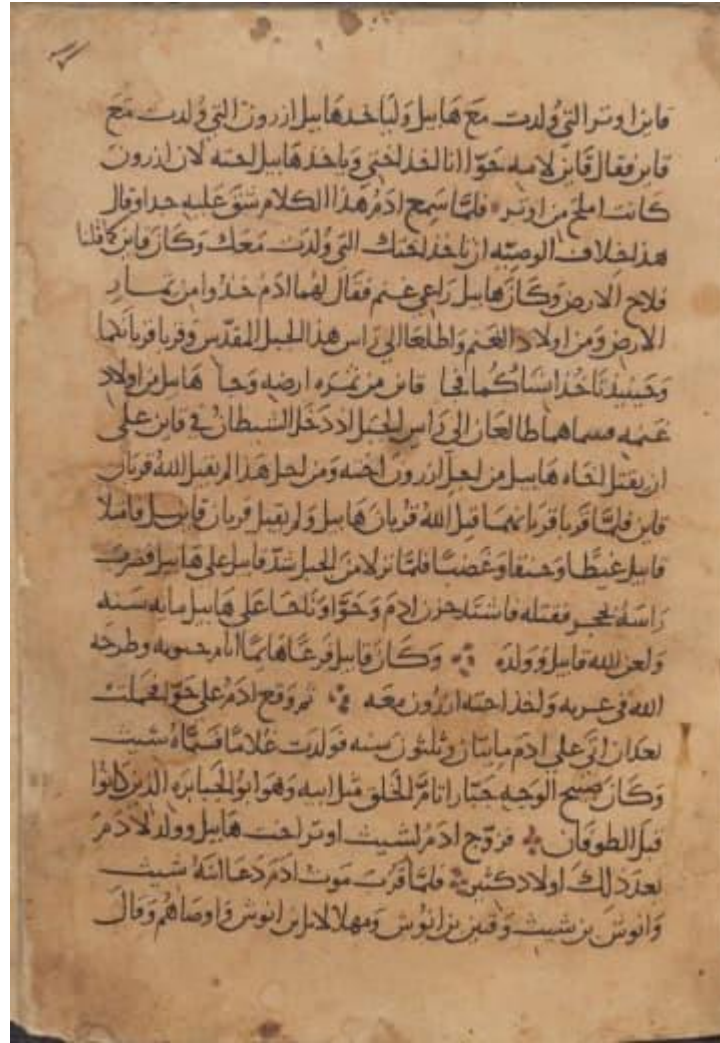 قاين اوثرا التي وُلدت مَع هَابيل وَلياخد هَابيل ازرون التي وُلدت مَع
قاين فقال قَاين لامه حَوّا انا اخد اختي وَياخد هَابيل اخته لان ازرون
كَانت املح من اوثرا فلمّا سَمع ادَمُ هَذا الكلام شق عَليه جدا وقال
هذا خلاف الوصيّه ان تاخد اختك التي وُلدت مَعَك وَكَان قاين كما قلنا
فلاح الارض وَكَان هَابيل رَاعي غنم فقَال لهُما ادَمُ خذوا من ثمار
الارض وَمن اولاد الغنم وَاطلعَا الي رَاس هذا الجبل المقدّس وَقربا قربانكما
وَحينيد تاخذا نساكُما فجا قاين من ثمره ارضه وَجا هَابيل من اولاد
غنمه فبينما هما طالعَان الى رَاس الجبَل اد دَخل الشيطان في قاين على
ان يقتل اخاه هَابيل من اجل ازرون اخته وَمن اجل هذا لم يقبل اللهُ قربان
قاين فلمَّا قرَبا قربانهما قبل اللهُ قرُبان هَابيل وَلم يقبل قربان قابيل فامتلا
قابيل غيظًا وَحنقا وَغضبًا فلمّا نزلا منَ الجبل شدّ قابيل على هَابيل فضربَ
رَاسَهُ بحجر فقتله فاشتد حزن ادم وَحَوَّا وَنَاحَا عَلى هَابيل مايه سَنه
وَلعن الله قابيل وَولدَه وَكَان قابيل فزعًا هَايمًا ايام حيوته وطرحه
الله في غربه وَاخذ اخته ازرون معَه ثم وَقع ادمُ على حَوّا فحملت
بعد ان اتى على ادم مايتان وثلثون سنه فولدت غُلامًا فسَمّاهُ شيث
وَكَان صبيح الوَجه جبّارا تامَّ الخلق مثل ابيه وَهوَ ابو الجبابره الذين كانوا
قبل الطوفان فزوّج ادمُ لشيث اوثرا اخت هَابيل وولد لادم
بعد ذلكَ اولاد كثير فلمّا قربَ موت ادمَ دَعَا ابنَهُ شيث
وَانوش بن شيث وَقينن بن انوُش وَمهلالاييل بن انوش وَاوصَاهُم وَقالَ